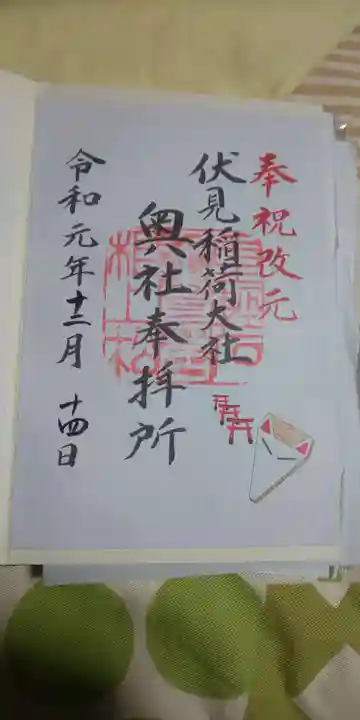 奉祝改元
伏見稲荷大社
奥社奉拝所
令和元年十二月十四日